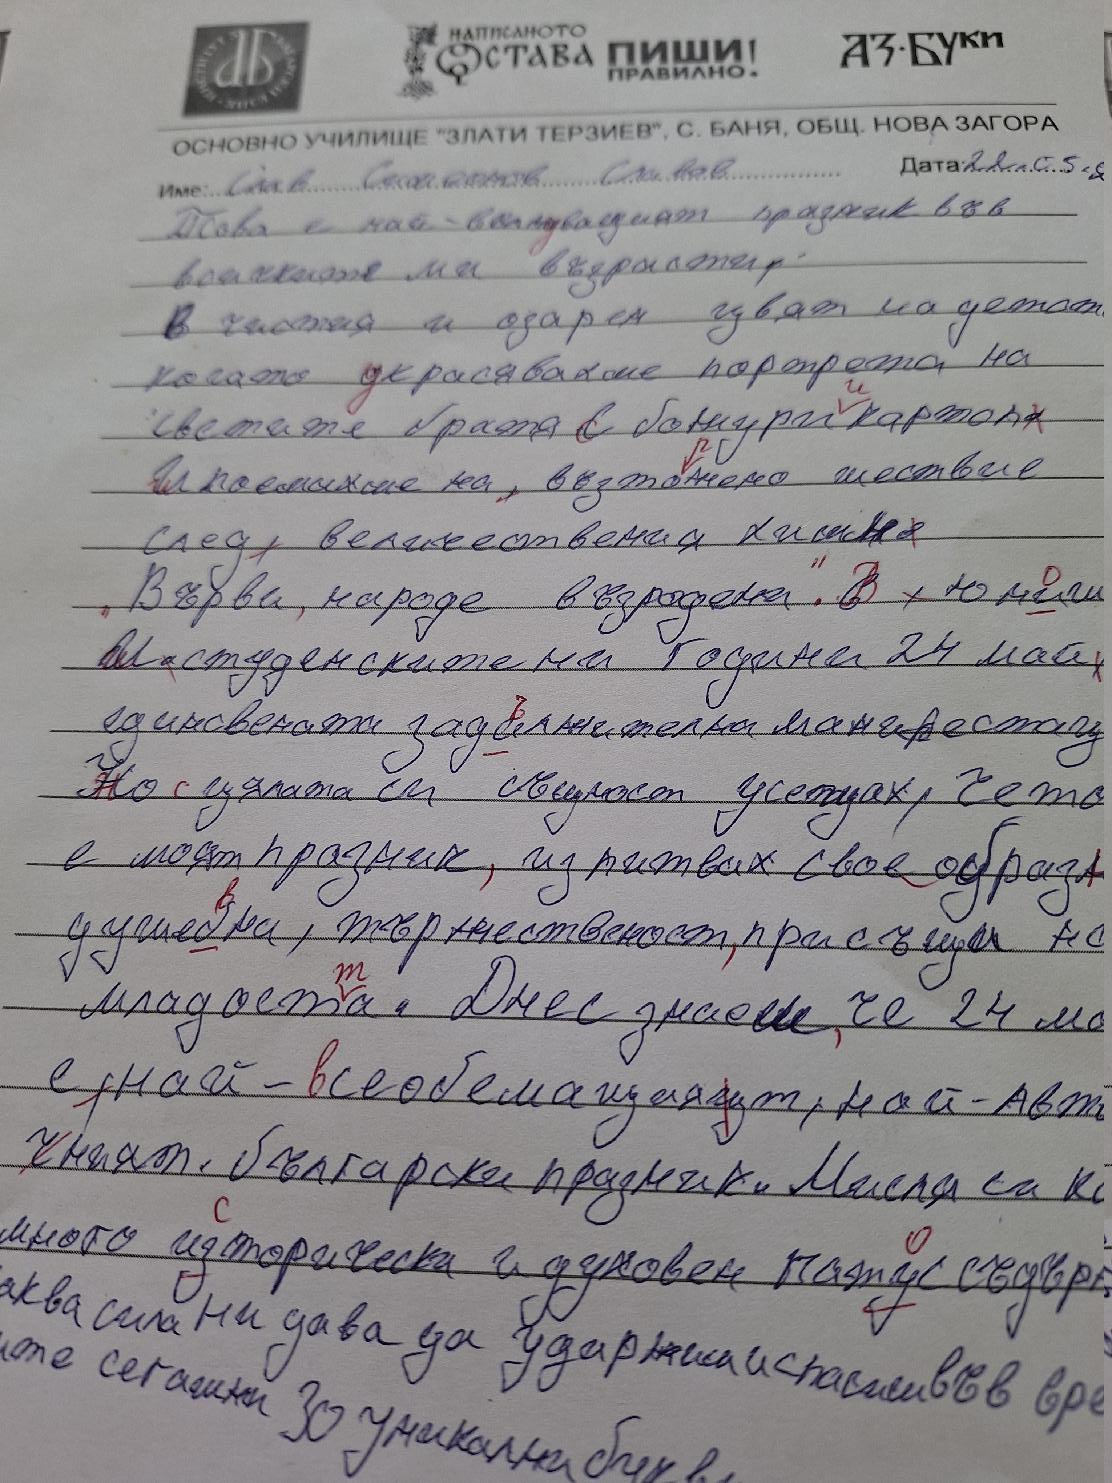 НАПИСАНОТО ОСТАВА ПИШИ ПРАВИЛНО! АЗ·БУКИ
ОСНОВНО УЧИЛИЩЕ "ЗЛАТИ ТЕРЗИЕВ", С. БАНЯ, ОБЩ. НОВА ЗАГОРА
Име: Слав Славов Дата: 22.05.
Това е най-вълнуващият празник във
всичките ми възрасти.
В чистия и озарен цвят на детст
когато украсявахме портрета на
светите братя с божури и картон
и поемахме на, възторжено шествие
след, величествения химн
"Върви, народе възродени". В юноши
и студенските ни години 24 май
единсвената задължителна манифестац
Но с цялата си същност усетцах, чето
е моят празник, изпитвах свое образн
душевна, тържественост, присъщи на
младостта. Днес знаем, че 24 ма
е, най-всеобемащият, най-авт
чният. български празник. Мисля си к
много историческа и духовен патос съдърж
аква сила ни дава да удържиш и спасиш във вре
ите сегашни 30 уникални букви